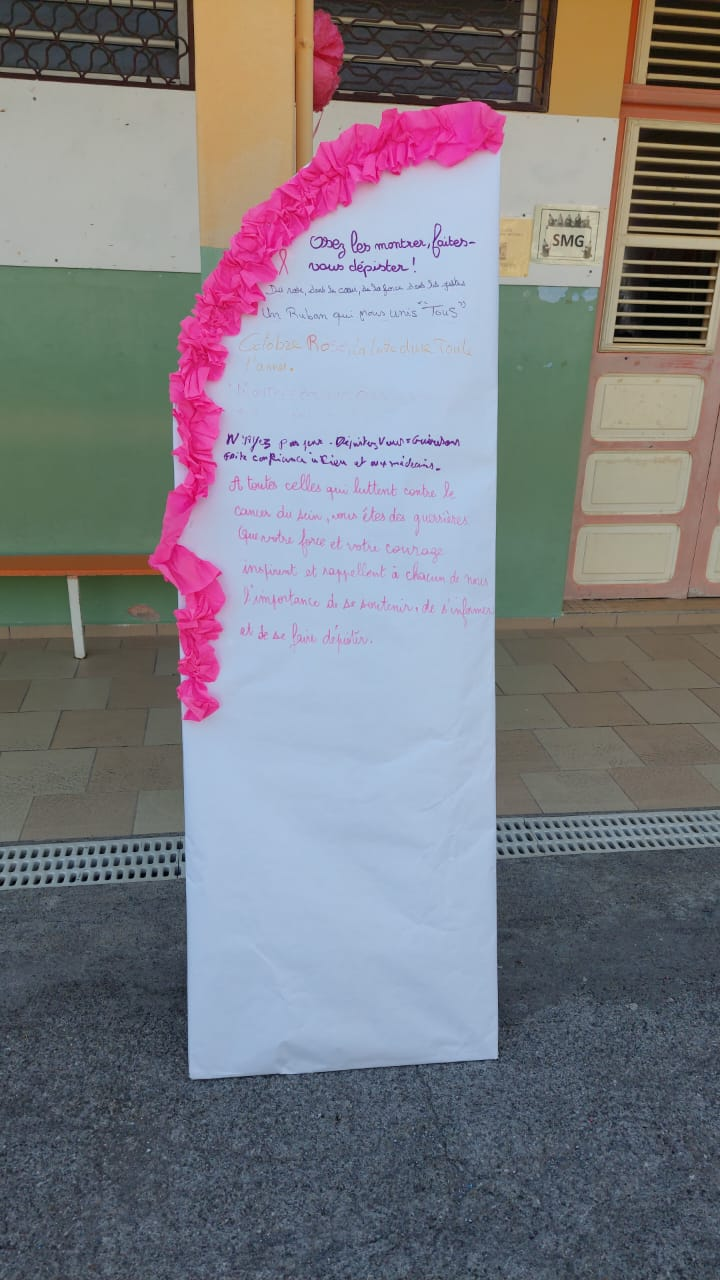 Osez les montrer, faites-
vous dépister !
Du rose, dans le cœur, de la force dans les gestes
Un Ruban qui nous unis "Tous"
Octobre Rose, la lutte dure Toute
l'année.
N'ayez pas peur - Dépistez Vous = Guérison
Faite confiance à Dieu et aux médecins.
A toutes celles qui luttent contre le
cancer du sein, vous êtes des guerrières.
Que votre force et votre courage
inspirent et rappellent à chacun de nous
l'importance de se soutenir, de s'informer
et de se faire dépister.
SMG